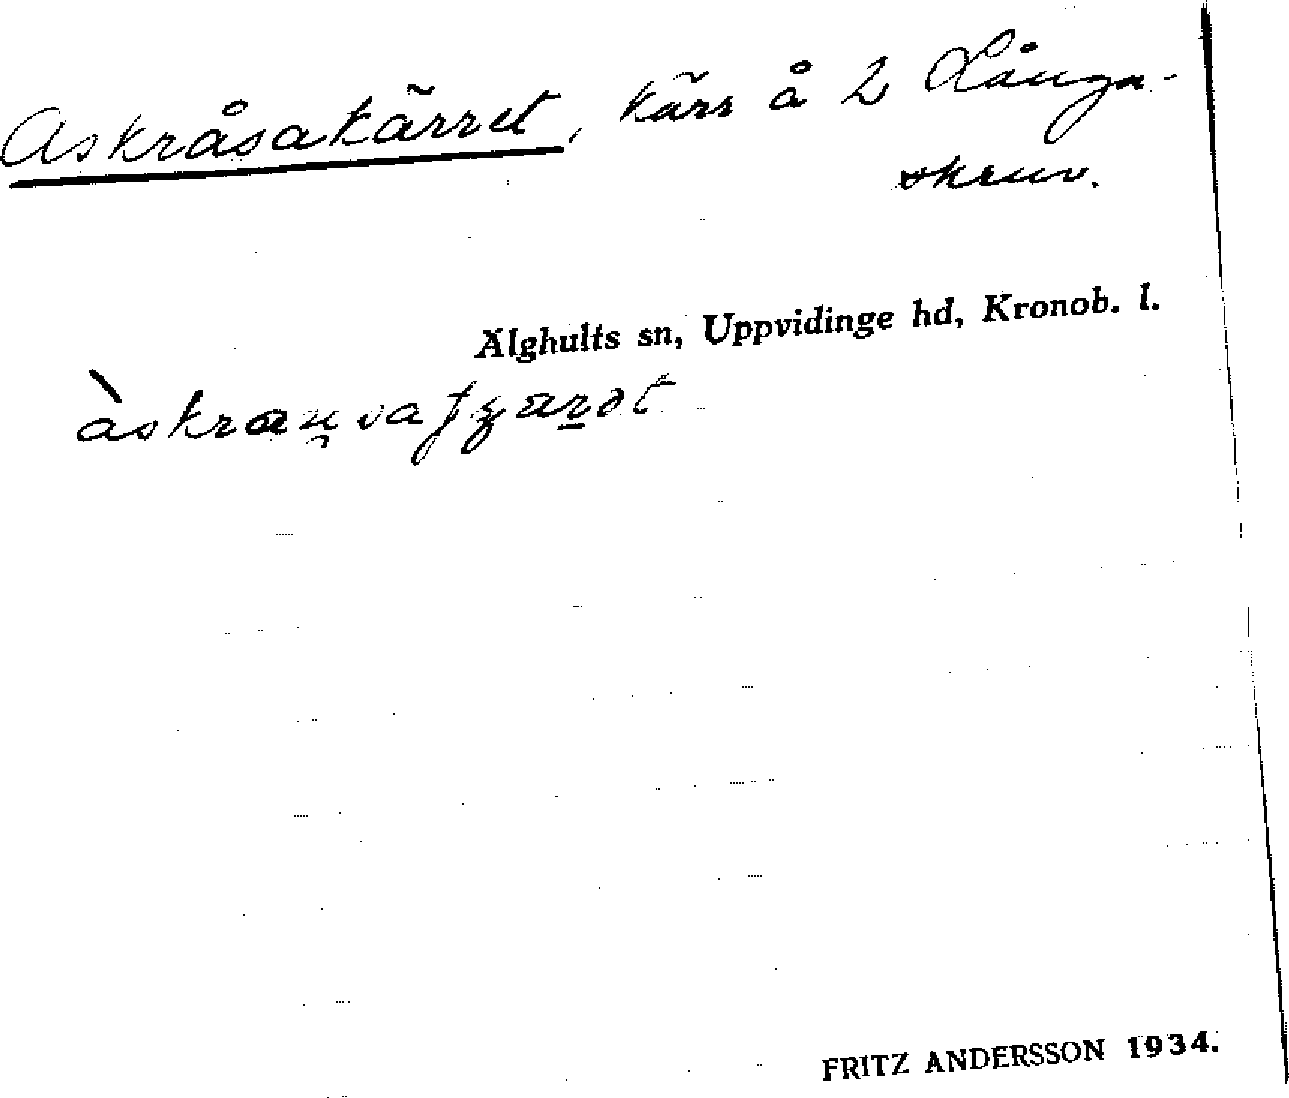 Askråsakärret, kärr å 2 Långa-
skruv.
Älghults sn, Uppvidinge hd, Kronob. l.
FRITZ ANDERSSON 1934.